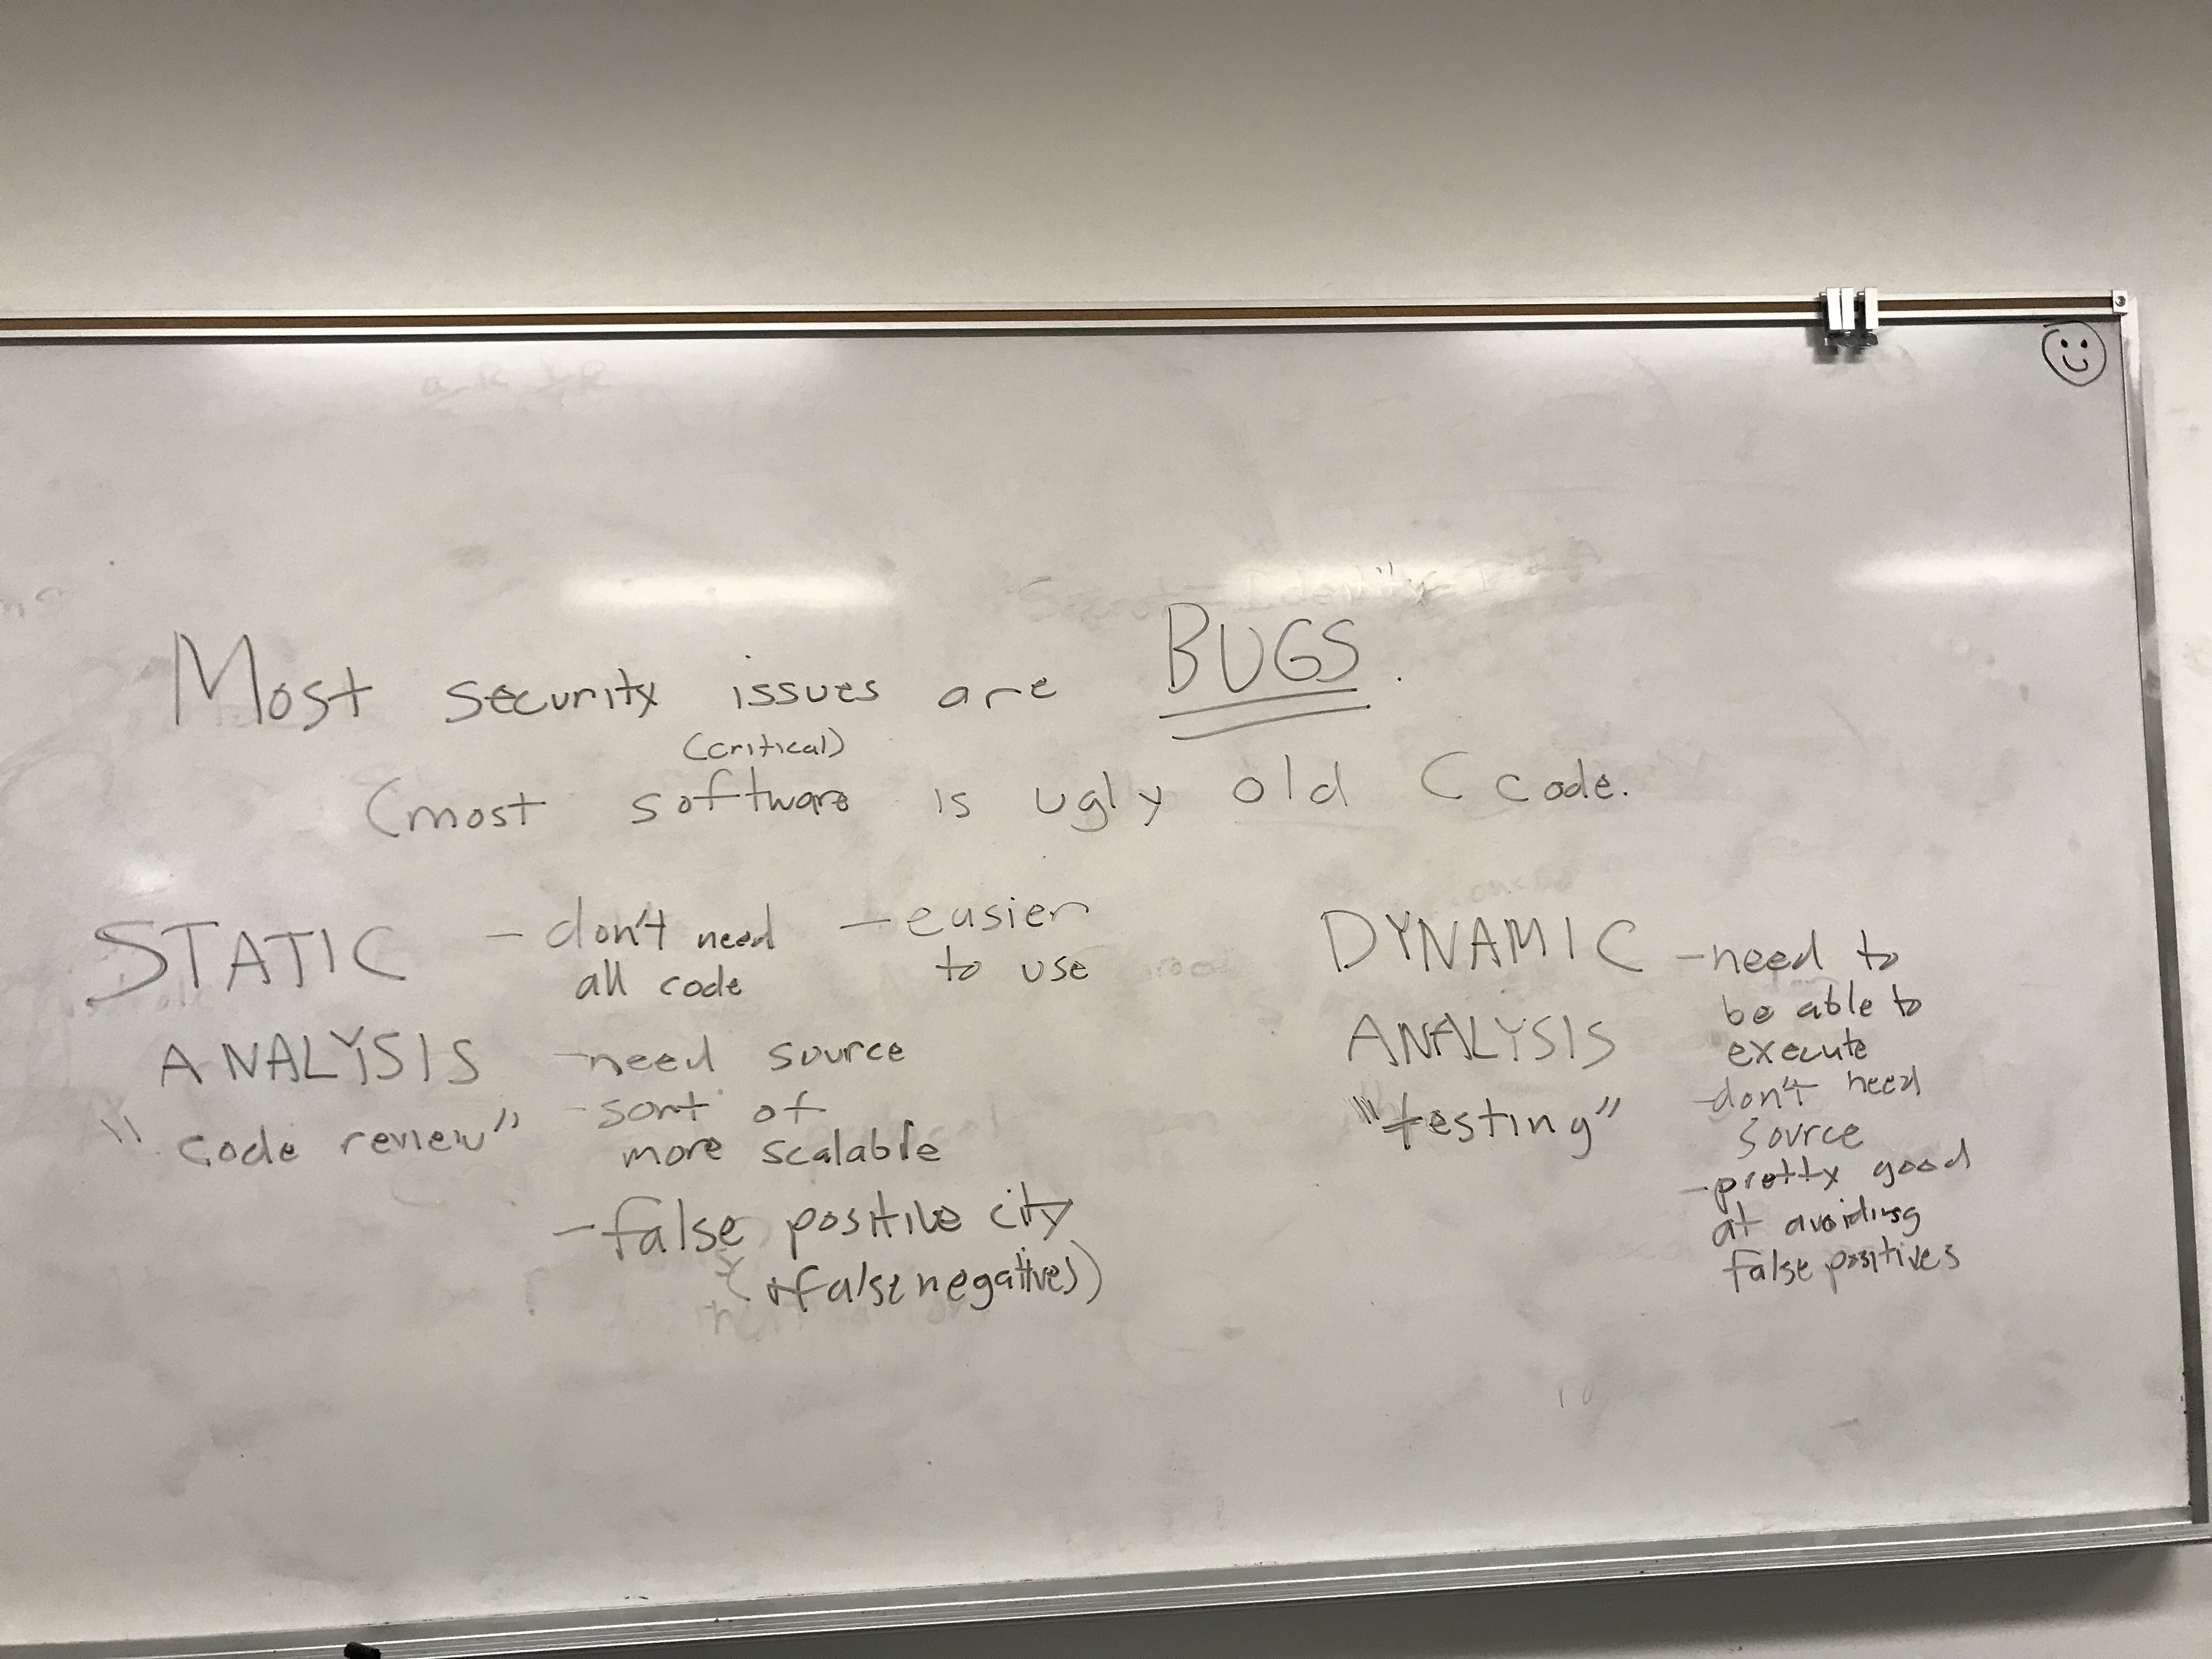 Most security issues are BUGS.
(critical)
(most software is ugly old C code.
STATIC
ANALYSIS
"code review"
- don't need
all code
- easier
to use
- need source
- sort of
more scalable
- false positive city
(+false negatives)
DYNAMIC
ANALYSIS
"testing"
- need to
be able to
execute
- don't need
source
- pretty good
at avoiding
false positives